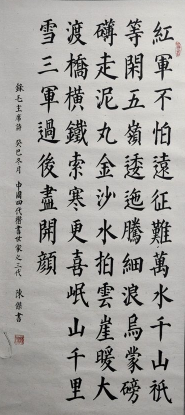 紅軍不怕遠征難萬水千山祇
等閑五嶺逶迤騰細浪烏蒙磅
礴走泥丸金沙水拍雲崖暖大
渡橋橫鐵索寒更喜岷山千里
雪三軍過後盡開顏
錄毛主席詩 癸巳冬月 中國四代楷書世家之三代 陳傑書